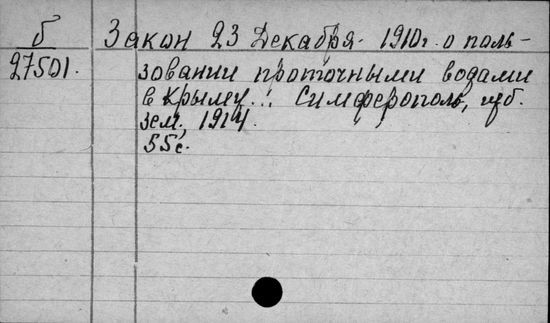 б
27501.
Закон 23 Декабря 1910г. о поль-
зовании проточными водами
в Крыму... Симферополь, губ.
зем., 1914.
55с.